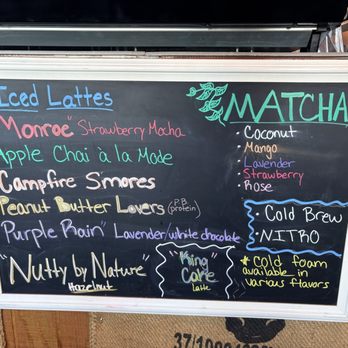 Iced Lattes
"Monroe" Strawberry Mocha
Apple Chai à la Mode
Campfire S'mores
Peanut Butter Lovers (P.B. protein)
"Purple Rain" Lavender/white chocolate
"Nutty by Nature"
Hazelnut
"King Cake"
Latte
MATCHA
• Coconut
• Mango
• Lavender
• Strawberry
• Rose
• Cold Brew
• NITRO
* Cold foam
available in
various flavors